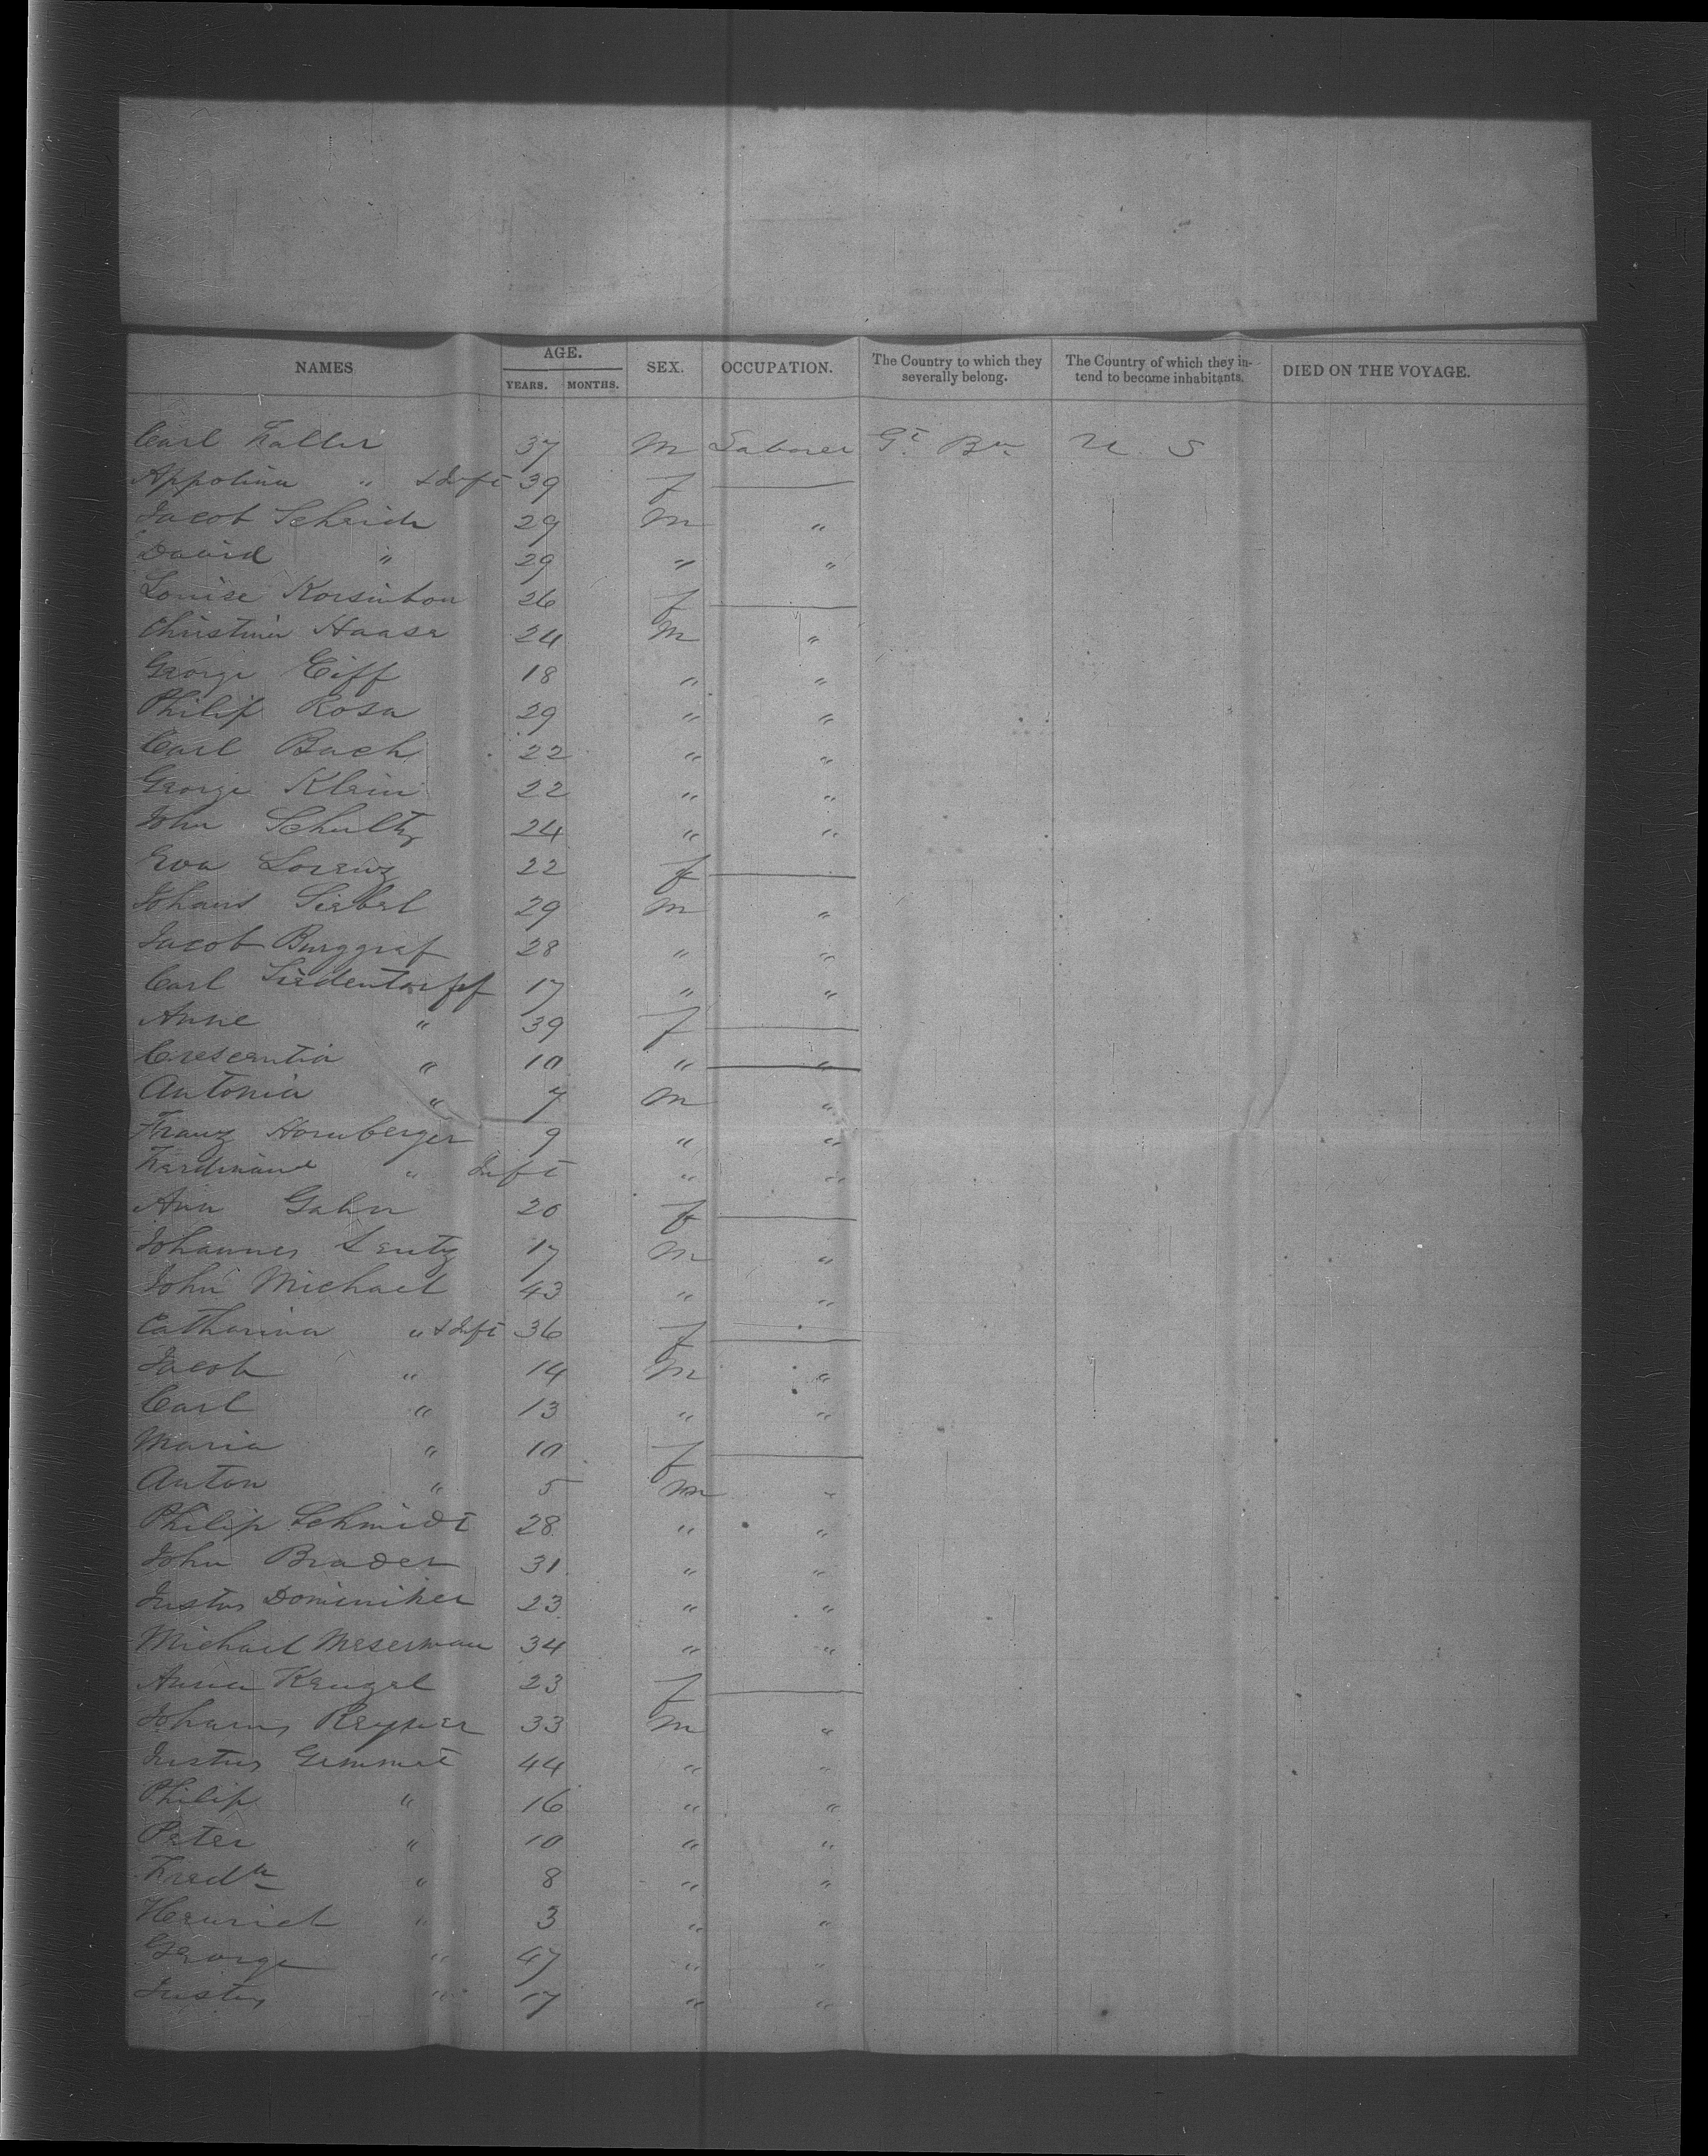 NAMES AGE. YEARS. MONTHS. SEX. OCCUPATION. The Country to which they severally belong. The Country of which they intend to become inhabitants. DIED ON THE VOYAGE.
Carl Faller 37 M Laborer Gt. Bn. U. S
Appolina " & Inft 39 f
Jacob Scheide 29 M "
David " 29 " "
Louise 26 f
Christina Haase 24 M "
George Eiff 18 " "
Philip Rosa 29 " "
Carl Bach 22 " "
George Klein 22 " "
John Schultz 24 " "
Eva Lorenz 22 f
Johans Siebel 29 M "
Jacob Burggraf 28 " "
Carl Siedentorff 17 " "
Anne " 39 f
Crescentia " 10 " "
Antonia " 7 M "
Franz Hornberger 9 " "
Ferdinand " Inft " "
Ann Gahn 20 f
Johannes Lentz 17 M "
John Michael 43 " "
Catharina " & Inft 36 f
Jacob " 14 M "
Carl " 13 " "
Maria " 10 f
Anton " 5 M "
Philip Schmidt 28 " "
John Brader 31 " "
Justus Dominiker 23 " "
Michael Meserman 34 " "
Anna Kengel 23 f
Johans 33 M "
Justus Gemmet 44 " "
Philip " 16 " "
Peter " 10 " "
Fredk " 8 " "
Henrich " 3 " "
George " 47 " "
Justus " 17 " "